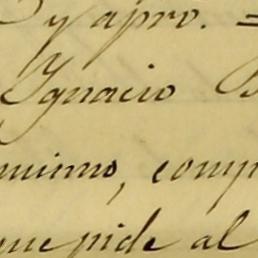 y apro. =
Ignacio B
mismo, comp
que pide al